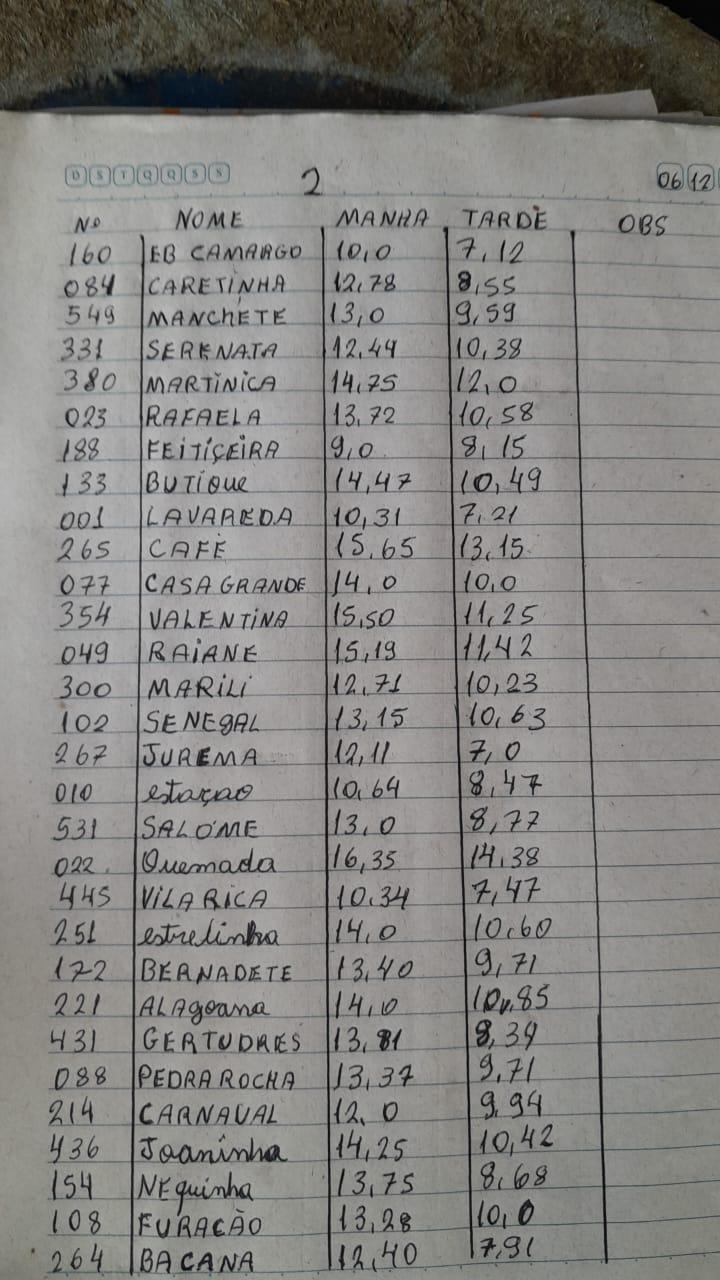 D S T Q Q S S
2
06 12
Nº NOME MANHA TARDE OBS
160 EB CAMARGO 10,0 7,12
084 CARETINHA 12,78 8,55
549 MANCHETE 13,0 9,59
331 SERENATA 12,44 10,38
380 MARTINICA 14,75 12,0
023 RAFAELA 13,72 10,58
188 FEITIÇEIRA 9,0 8,15
133 BUTIQUE 14,47 10,49
001 LAVAREDA 10,31 7,21
265 CAFÉ 15,65 13,15
077 CASA GRANDE 14,0 10,0
354 VALENTINA 15,50 11,25
049 RAIANE 15,19 11,42
300 MARILI 12,71 10,23
102 SENEGAL 13,15 10,63
267 JUREMA 12,11 7,0
010 estaçao 10,64 8,47
531 SALOME 13,0 8,77
022 Queimada 16,35 14,38
445 VILA RICA 10,34 7,47
251 estrelinha 14,0 10,60
172 BERNADETE 13,40 9,71
221 ALAgoana 14,0 10,85
431 GERTUDRES 13,81 8,39
088 PEDRA ROCHA 13,37 9,71
214 CARNAVAL 12,0 9,94
436 Joaninha 14,25 10,42
154 NEquinha 13,75 8,68
108 FURACÃO 13,28 10,0
264 BACANA 12,40 7,91